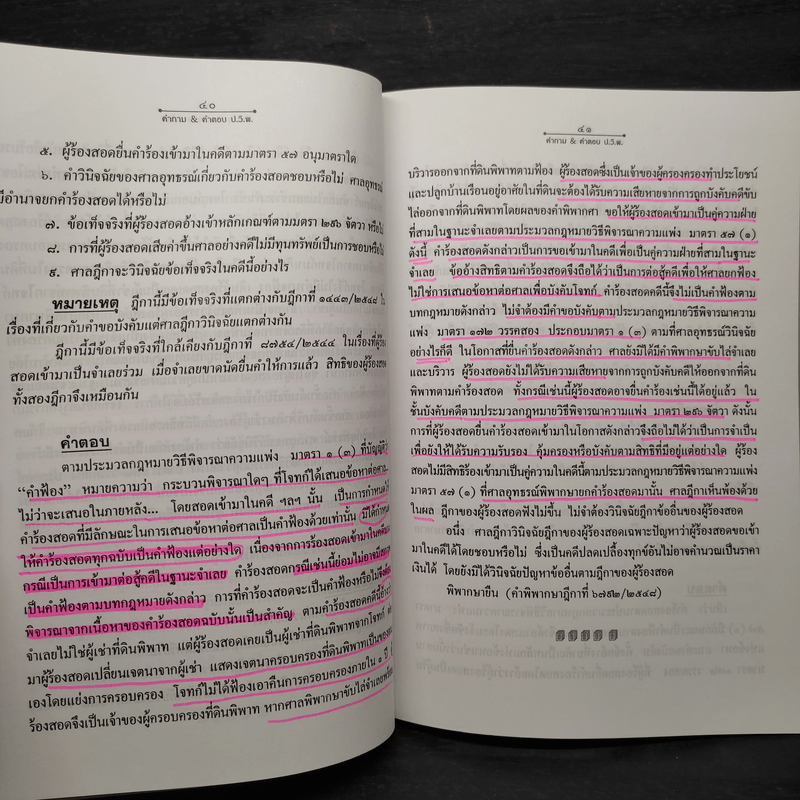 ๔๐
คำถาม & คำตอบ ป.วิ.พ.
๕. ผู้ร้องสอดยื่นคำร้องเข้ามาในคดีตามมาตรา ๕๗ อนุมาตราใด
๖. คำวินิจฉัยของศาลอุทธรณ์เกี่ยวกับคำร้องสอดชอบหรือไม่ ศาลอุทธรณ์
มีอำนาจยกคำร้องสอดได้หรือไม่
๗. ข้อเท็จจริงที่ผู้ร้องสอดอ้างเข้าหลักเกณฑ์ตามมาตรา ๒๙๖ จัตวา หรือไม่
๘. การที่ผู้ร้องสอดเสียค่าขึ้นศาลอย่างคดีไม่มีทุนทรัพย์เป็นการชอบหรือไม่
๙. ศาลฎีกาจะวินิจฉัยข้อเท็จจริงในคดีนี้อย่างไร
หมายเหตุ ฎีกานี้มีข้อเท็จจริงที่แตกต่างกับฎีกาที่ ๑๔๔๓/๒๕๔๘ ใน
เรื่องที่เกี่ยวกับคำขอบังคับแต่ศาลฎีกาวินิจฉัยแตกต่างกัน
ฎีกานี้มีข้อเท็จจริงที่ใกล้เคียงกับฎีกาที่ ๘๗๕๔/๒๕๔๔ ในเรื่องที่ผู้ร้อง
สอดเข้ามาเป็นจำเลยร่วม เมื่อจำเลยขาดนัดยื่นคำให้การแล้ว สิทธิของผู้ร้องสอด
ทั้งสองฎีกาจึงเหมือนกัน
คำตอบ
ตามประมวลกฎหมายวิธีพิจารณาความแพ่ง มาตรา ๑ (๓) ที่บัญญัติว่า
“คำฟ้อง” หมายความว่า กระบวนพิจารณาใดๆ ที่โจทก์ได้เสนอข้อหาต่อศาล...
ไม่ว่าจะเสนอในภายหลัง... โดยสอดเข้ามาในคดี ฯลฯ นั้น เป็นการกำหนดให้
คำร้องสอดที่มีลักษณะในการเสนอข้อหาต่อศาลเป็นคำฟ้องด้วยเท่านั้น มิได้กำหนด
ให้คำร้องสอดทุกฉบับเป็นคำฟ้องแต่อย่างใด เนื่องจากการร้องสอดเข้ามาในคดีนั้น
กรณีเป็นการเข้ามาต่อสู้คดีในฐานะจำเลย คำร้องสอดกรณีเช่นนี้ย่อมไม่อาจ
เป็นคำฟ้องตามบทกฎหมายดังกล่าว การที่คำร้องสอดจะเป็นคำฟ้องหรือไม่จึงต้อง
พิจารณาจากเนื้อหาของคำร้องสอดฉบับนั้นเป็นสำคัญ ตามคำร้องสอดคดีนี้อ้างว่า
จำเลยไม่ใช่ผู้เช่าที่ดินพิพาท แต่ผู้ร้องสอดเคยเป็นผู้เช่าที่ดินพิพาทจากโจทก์ ต่อ
มาผู้ร้องสอดเปลี่ยนเจตนาจากผู้เช่า แสดงเจตนาครอบครองที่ดินพิพาทเป็นของตน
เองโดยแย่งการครอบครอง โจทก์ไม่ได้ฟ้องเอาคืนการครอบครองภายใน ๑ ปี ผู้
ร้องสอดจึงเป็นเจ้าของผู้ครอบครองที่ดินพิพาท หากศาลพิพากษาขับไล่จำเลยพร้อม
๔๑
คำถาม & คำตอบ ป.วิ.พ.
บริวารออกจากที่ดินพิพาทตามฟ้อง ผู้ร้องสอดซึ่งเป็นเจ้าของผู้ครองครองทำประโยชน์
และปลูกบ้านเรือนอยู่อาศัยในที่ดินจะต้องได้รับความเสียหายจากการถูกบังคับคดีขับ
ไล่ออกจากที่ดินพิพาทโดยผลของคำพิพากศา ขอให้ผู้ร้องสอดเข้ามาเป็นคู่ความฝ่าย
ที่สามในฐานะจำเลยตามประมวลกฎหมายวิธีพิจารณาความแพ่ง มาตรา ๕๗ (๑)
ดังนี้ คำร้องสอดดังกล่าวเป็นการขอเข้ามาในคดีเพื่อเป็นคู่ความฝ่ายที่สามในฐานะ
จำเลย ข้ออ้างสิทธิตามคำร้องสอดจึงถือได้ว่าเป็นการต่อสู้คดีเพื่อให้ศาลยกฟ้อง
ไม่ใช่การเสนอข้อหาต่อศาลเพื่อบังคับโจทก์ คำร้องสอดคดีนี้จึงไม่เป็นคำฟ้องตาม
บทกฎหมายดังกล่าว ไม่จำต้องมีคำขอบังคับตามประมวลกฎหมายวิธีพิจารณาความ
แพ่ง มาตรา ๑๗๒ วรรคสอง ประกอบมาตรา ๑ (๓) ตามที่ศาลอุทธรณ์วินิจฉัย
อย่างไรก็ดี ในโอกาสที่ยื่นคำร้องสอดดังกล่าว ศาลยังมิได้มีคำพิพากษาขับไล่จำเลย
และบริวาร ผู้ร้องสอดยังไม่ได้รับความเสียหายจากการถูกบังคับคดีให้ออกจากที่ดิน
พิพาทตามคำร้องสอด ทั้งกรณีเช่นนี้ผู้ร้องสอดอาจยื่นคำร้องเช่นนี้ได้อยู่แล้ว ใน
ชั้นบังคับคดีตามประมวลกฎหมายวิธีพิจารณาความแพ่ง มาตรา ๒๙๖ จัตวา ดังนั้น
การที่ผู้ร้องสอดยื่นคำร้องเข้ามาในโอกาสดังกล่าวจึงถือไม่ได้ว่าเป็นการจำเป็น
เพื่อยังให้ได้รับความรับรอง คุ้มครองหรือบังคับตามสิทธิที่มีอยู่แต่อย่างใด ผู้ร้อง
สอดไม่มีสิทธิร้องเข้ามาเป็นคู่ความในคดีนี้ตามประมวลกฎหมายวิธีพิจารณาความแพ่ง
มาตรา ๕๗ (๑) ที่ศาลอุทธรณ์พิพากษายกคำร้องสอดมานั้น ศาลฎีกาเห็นพ้องด้วย
ในผล ฎีกาของผู้ร้องสอดฟังไม่ขึ้น ไม่จำต้องวินิจฉัยฎีกาข้ออื่นของผู้ร้องสอด
อนึ่ง ศาลฎีกาวินิจฉัยฎีกาของผู้ร้องสอดเฉพาะปัญหาว่าผู้ร้องสอดขอเข้า
มาในคดีได้โดยชอบหรือไม่ ซึ่งเป็นคดีปลดเปลื้องทุกข์อันไม่อาจคำนวณเป็นราคา
เงินได้ โดยยังมิได้วินิจฉัยปัญหาข้ออื่นตามฎีกาของผู้ร้องสอด
พิพากษายืน (คำพิพากษาฎีกาที่ ๖๗๙๒/๒๕๔๘)